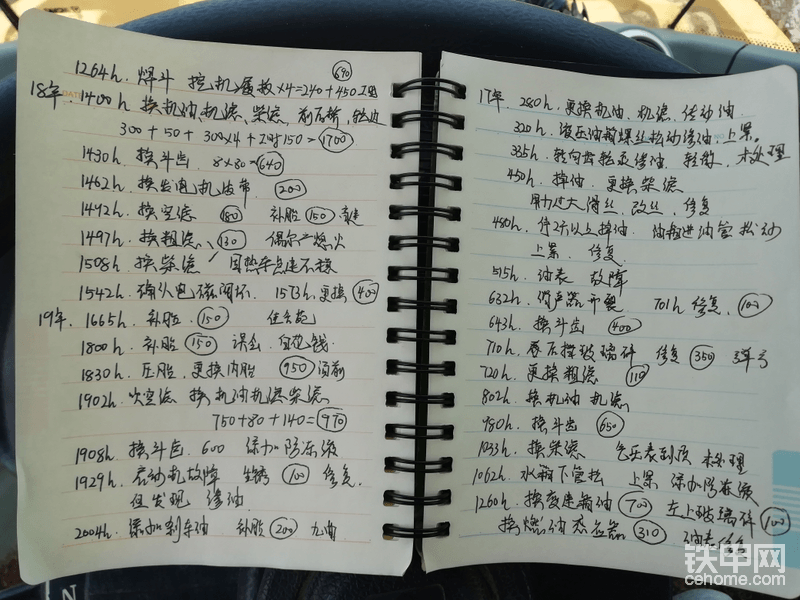 690
1264h. 焊斗 挖机履板×4=240+450工时
18年. 1400h 换机油, 机滤、柴滤, 前后桥, 轮边
300+50+300×4+工时150=1700
1430h. 换斗齿 8×80=640
1462h. 换发电机皮带 200
1492h. 换空滤 180 补胎 150
1497h. 换粗滤 130 偶尔熄火
1508h 换柴滤
1542h. 确认电磁阀坏 1573h. 更换 400
19年. 1665h. 补胎 150
1800h. 补胎 150 误会 自花钱
1830h. 压胎, 更换内胎 950 须前
1902h. 吹空滤 换机油机滤柴滤
750+80+140=970
1908h. 换斗齿. 600 添加防冻液
1929h. 启动机故障 生锈 100 修复.
但发现 渗油.
2004h. 添加刹车油 补胎 200
17年. 280h. 更换机油. 机滤. 传动油
320h. 液压油箱螺丝松动渗油, 上紧。
385h. 转向 渗油 未处理
450h. 掉油. 更换柴滤
用力过大滑丝. 改丝. 修复
480h. 停2天以上掉油. 油箱进油管松动
上紧. 修复
515h. 油表 故障
632h. 消声器开裂 701h 修复. 100
643h. 换斗齿 400
710h. 右后控玻璃碎 修复 350
720h. 更换粗滤 110
802h. 换机油 机滤
980h. 换斗齿 650
1033h. 换柴滤 气压表到顶 未处理
1062h. 水箱下管松 上紧 添加防冻液
1260h. 换变速箱油 700 左上玻璃碎 100
换燃油感应器 310 油表修复
铁甲网
cehome.com
N